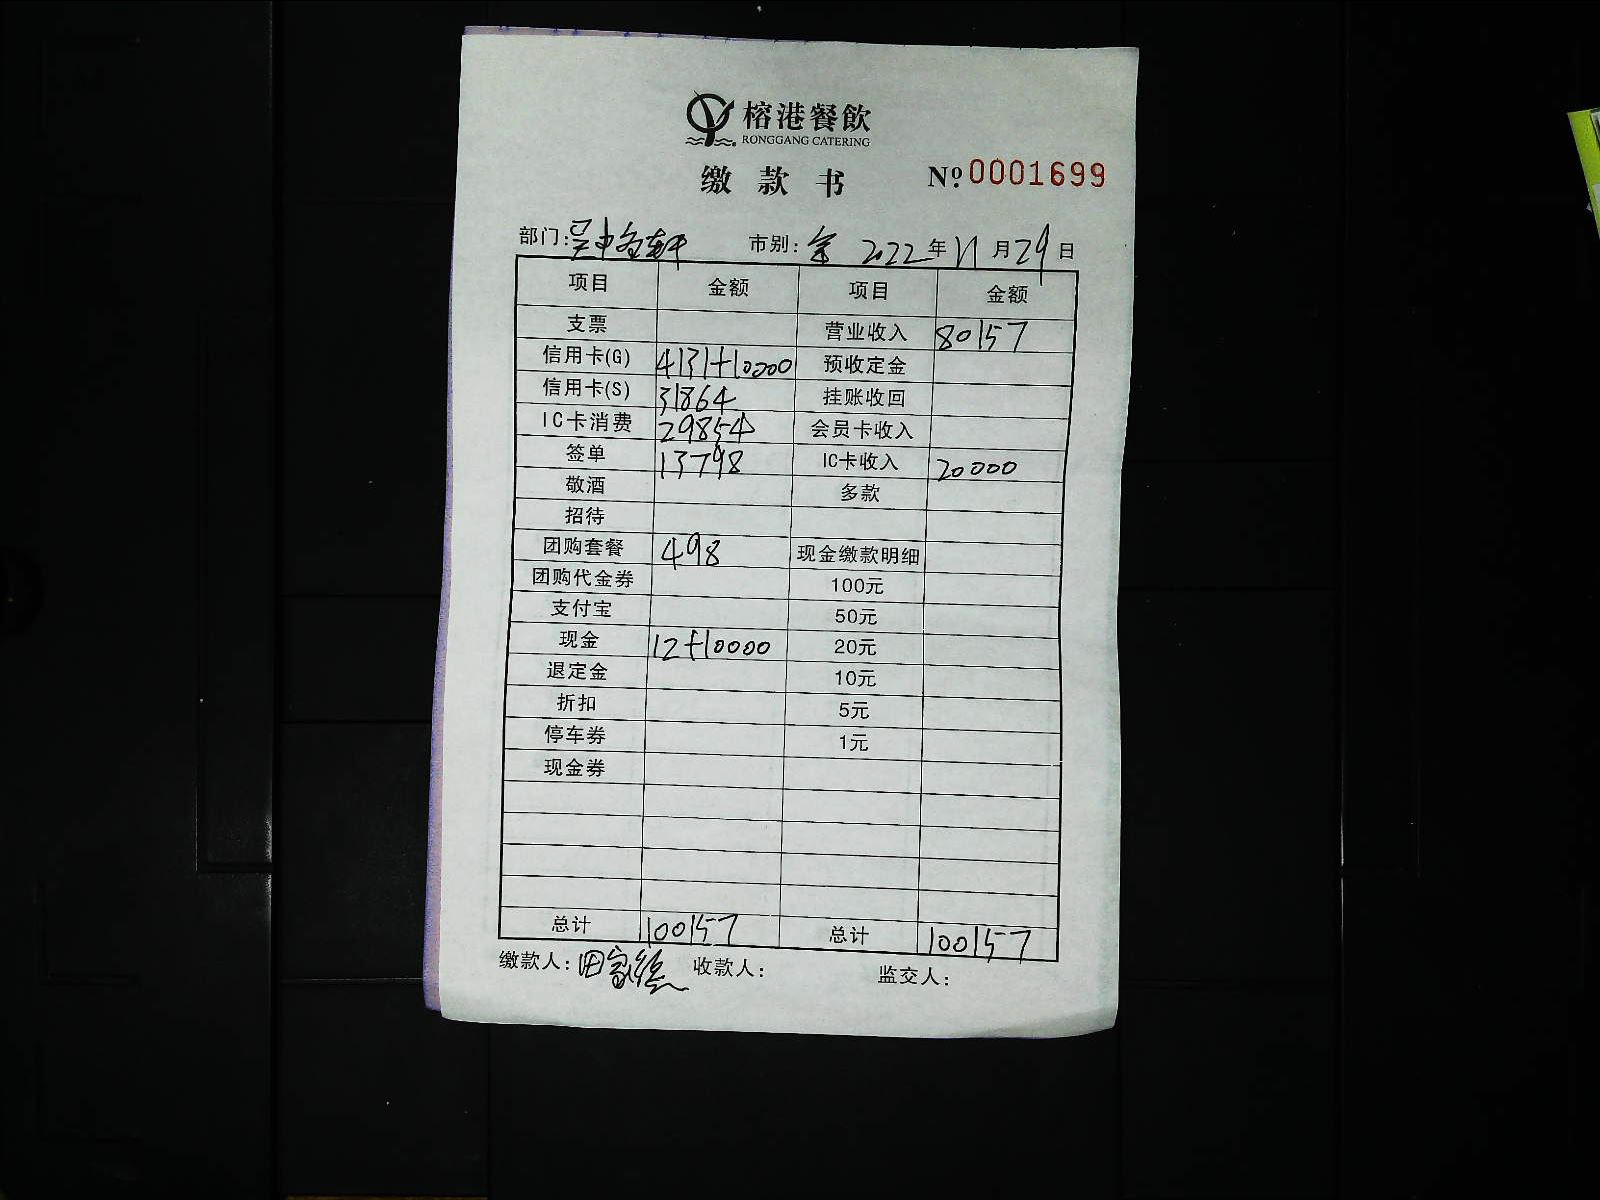 榕港餐飲
RONGGANG CATERING
缴款书 Nº 0001699
部门: 吴中 轩 市别: 全 2022年11月29日
项目 金额 项目 金额
支票 营业收入 80157
信用卡(G) 4131+10000 预收定金
信用卡(S) 31864 挂账收回
IC卡消费 29854 会员卡收入
签单 13798 IC卡收入 20000
敬酒 多款
招待
团购套餐 498 现金缴款明细
团购代金券 100元
支付宝 50元
现金 12+10000 20元
退定金 10元
折扣 5元
停车券 1元
现金券
总计 100157 总计 100157
缴款人: 田家 收款人: 监交人: